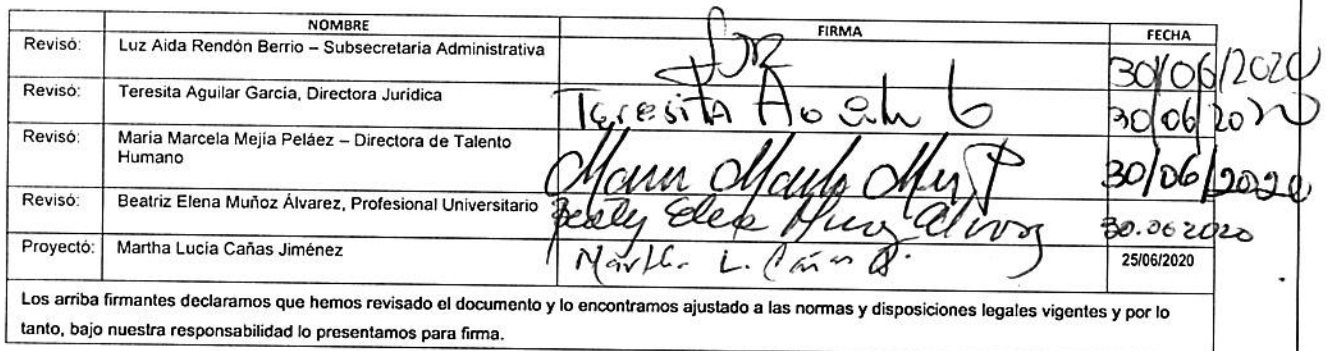 NOMBRE FIRMA FECHA
Revisó: Luz Aida Rendón Berrio – Subsecretaria Administrativa 30/06/2020
Revisó: Teresita Aguilar García, Directora Jurídica Teresita 30/06/2020
Revisó: Maria Marcela Mejía Peláez – Directora de Talento
Humano 30/06/2020
Revisó: Beatriz Elena Muñoz Álvarez, Profesional Universitario 30.06 2020
Proyectó: Martha Lucía Cañas Jiménez Martha L. 25/06/2020
Los arriba firmantes declaramos que hemos revisado el documento y lo encontramos ajustado a las normas y disposiciones legales vigentes y por lo
tanto, bajo nuestra responsabilidad lo presentamos para firma.